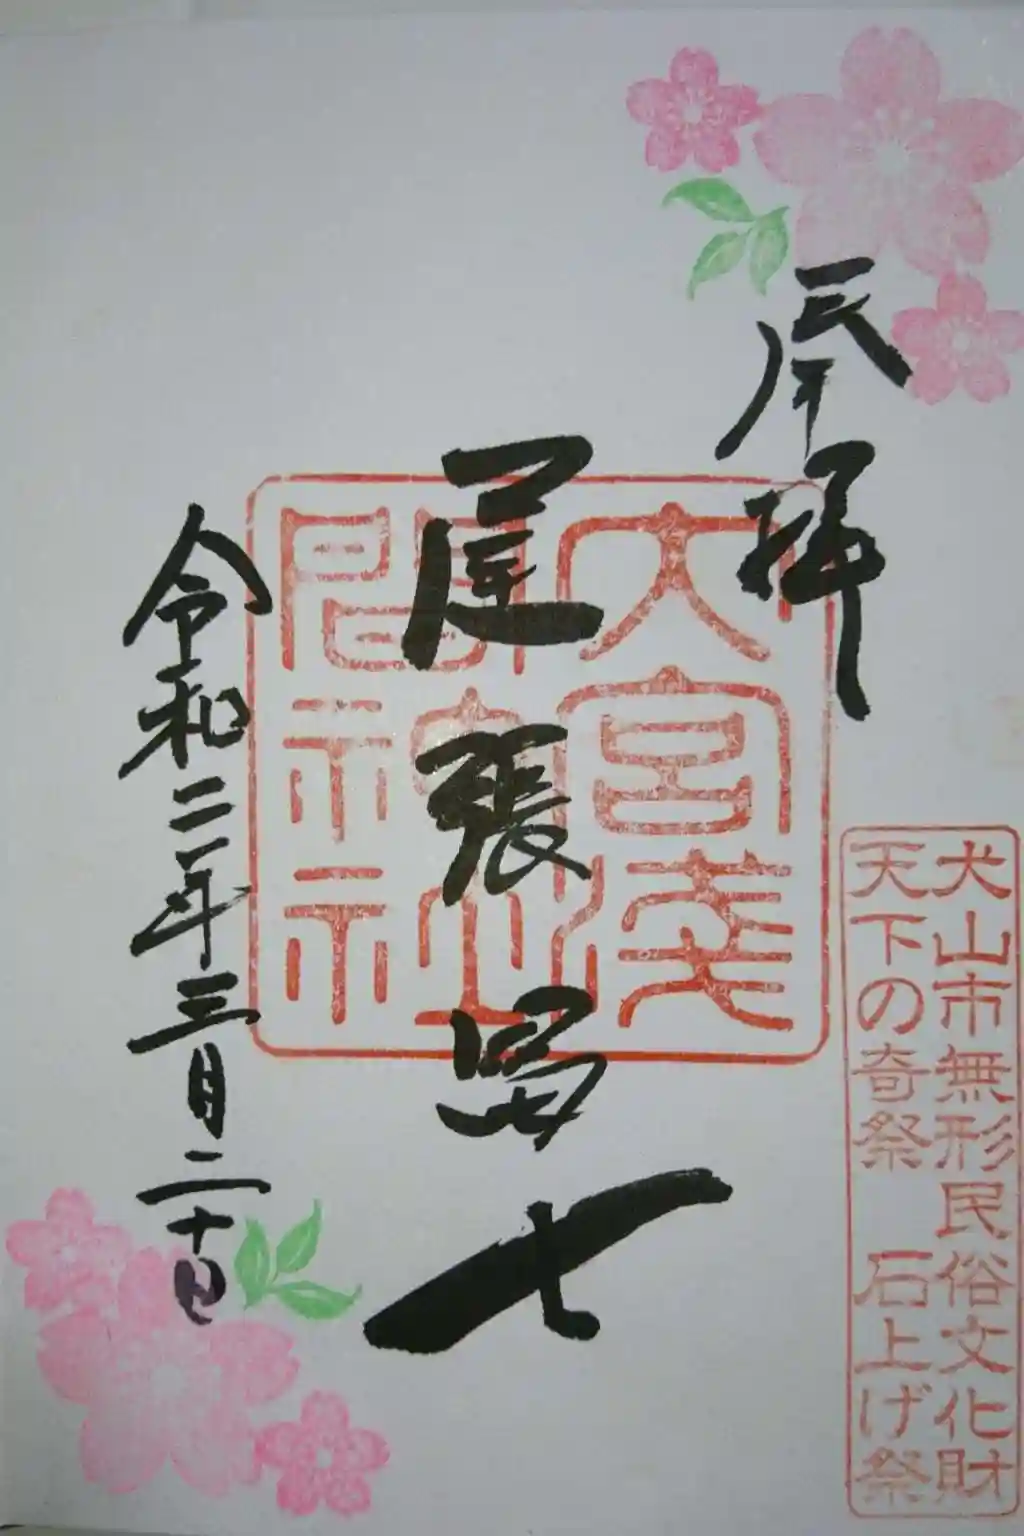 奉拝
大宮浅間神社
尾張冨士
犬山市無形民俗文化財
天下の奇祭 石上げ祭
令和二年三月二十日